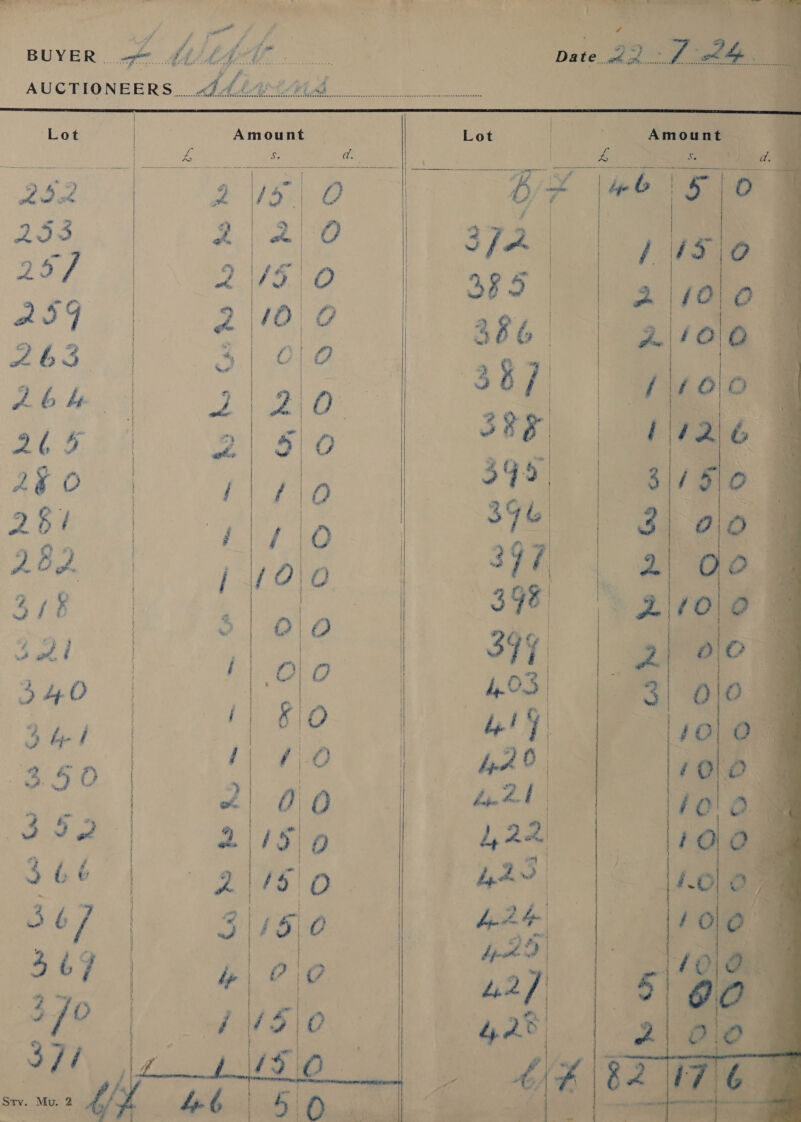 BUYER
Date 22 - 7 - 24
AUCTIONEERS Stevens
Lot Amount
£ s. d.
252 2 15 0
253 2 2 0
257 2 15 0
259 2 10 0
263 3 0 0
264 2 2 0
265 2 5 0
280 1 1 0
281 1 1 0
282 1 10 0
318 3 0 0
321 1 0 0
340 1 8 0
341 1 1 0
350 2 0 0
352 2 15 0
366 2 15 0
367 3 15 0
369 4 0 0
370 1 15 0
371 1 15 0
Sty. Mu. 2 C/F 46 5 0
Lot Amount
£ s. d.
B/F 46 5 0
372 1 15 0
385 2 10 0
386 2 10 0
387 1 10 0
388 1 12 6
395 3 15 0
396 3 0 0
397 2 0 0
398 2 10 0
399 2 0 0
403 3 0 0
419 10 0
420 10 0
421 10 0
422 10 0
423 10 0
424 10 0
425 10 0
427 5 0 0
428 2 0 0
C/F 82 17 6